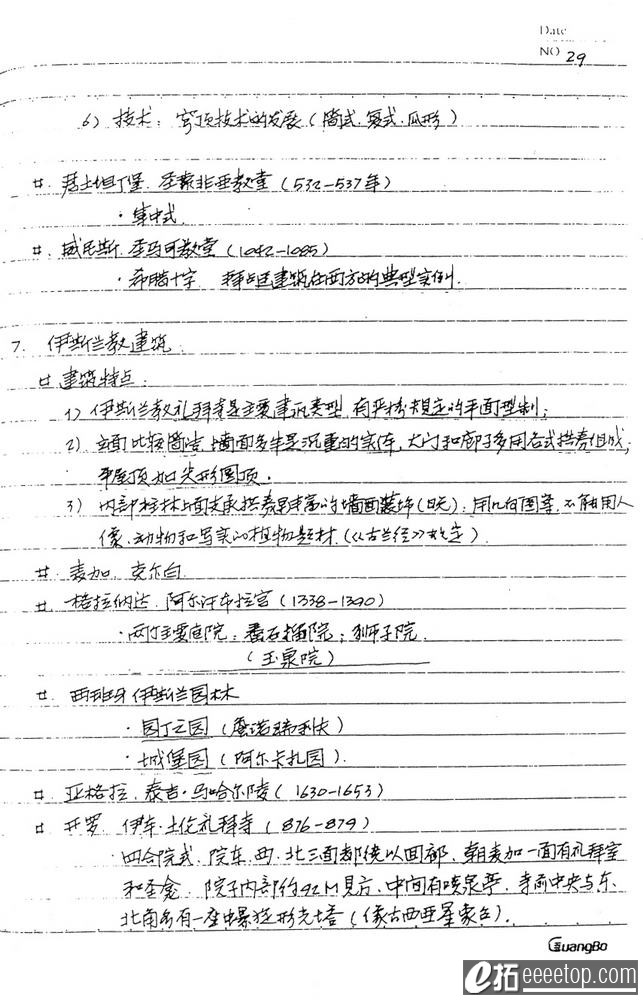 Date
NO 29
6) 技术：穹顶技术的发展（筒式.复式.瓜形）
廿. 君士坦丁堡. 圣索非亚教堂（532-537年）
· 集中式.
廿. 威尼斯. 圣马可教堂（1042-1085）
· 希腊十字. 拜占廷建筑在西方的典型实例.
7. 伊斯兰教建筑.
廿 建筑特点：
1) 伊斯兰教礼拜寺是主要建筑类型，有严格规定的平面型制；
2) 立面比较简洁，墙面多半是沉重的实体，大门和廊子多用各式拱券组成，
平屋顶加尖形圆顶.
3) 内部柱林上面支承拱券是丰富的墙面装饰：用几何图案，不能用人
像、动物和写实的植物题材（《古兰经》规定）.
廿. 麦加. 克尔白.
廿. 格拉纳达. 阿尔汗布拉宫（1338-1390）
· 两个主要庭院：番石榴院；狮子院.
（玉泉院）
廿. 西班牙伊斯兰园林
· 园丁之园（
· 城堡园（阿尔卡扎园）.
廿. 亚格拉. 泰吉·马哈尔陵（1630-1653）
廿. 开罗. 伊本·土伦礼拜寺（876-879）
· 四合院式，院东、西、北三面都绕以回廊，朝麦加一面有礼拜室
和圣龛. 院子内部约92M見方，中间有喷泉亭. 寺前中央与东、
北角各有一座螺旋形光塔（像古西亚星象台）.
GuangBo
e拓 eeeetop.com